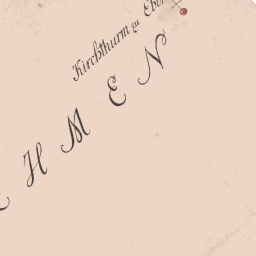 Kirchthurm zu
HMEN